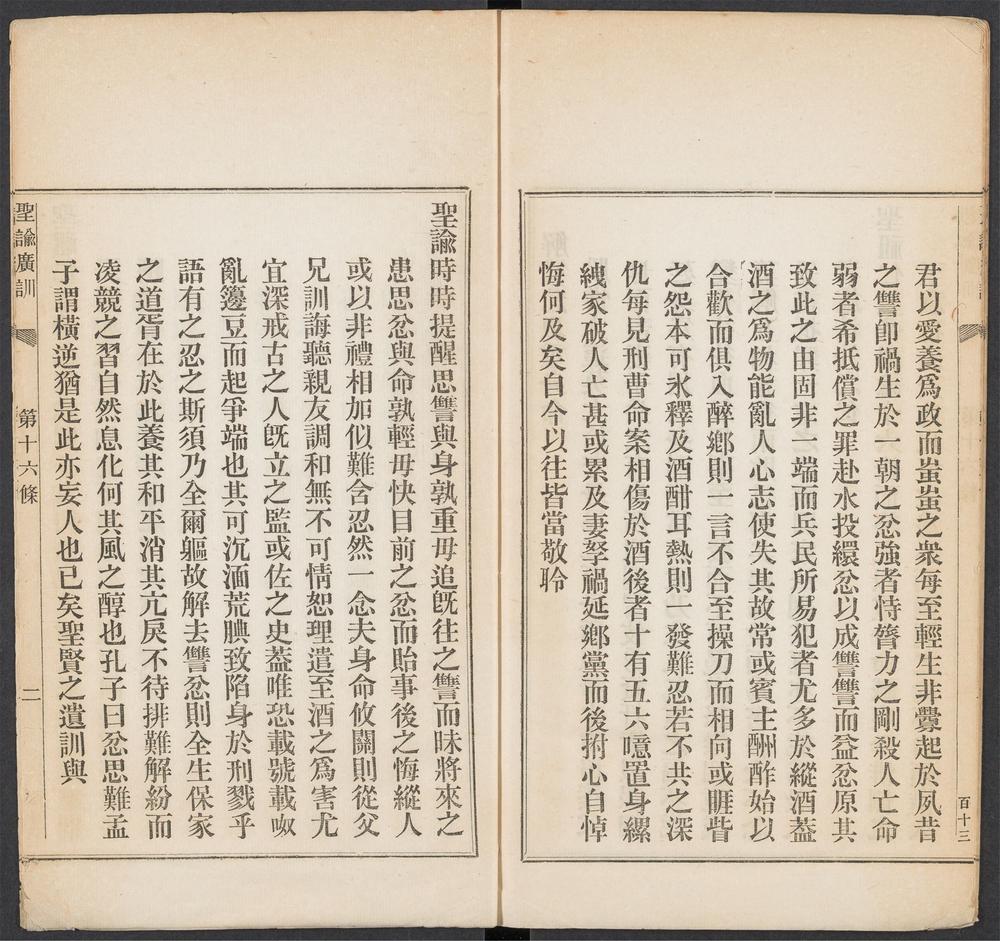 君以愛養爲政而蚩蚩之衆每至輕生非釁起於夙昔
之讐卽禍生於一朝之忿強者恃膂力之剛殺人亡命
弱者希抵償之罪赴水投繯忿以成讐讐而益忿原其
致此之由固非一端而兵民所易犯者尤多於縱酒蓋
酒之爲物能亂人心志使失其故常或賓主酬酢始以
合歡而俱入醉鄉則一言不合至操刀而相向或睚眥
之怨本可氷釋及酒酣耳熱則一發難忍若不共之深
仇每見刑曹命案相傷於酒後者十有五六噫置身縲
絏家破人亡甚或累及妻孥禍延鄉黨而後拊心自悼
悔何及矣自今以往皆當敬聆
百十三
聖諭時時提醒思讐與身孰重毋追旣往之讐而昧將來之
患思忿與命孰輕毋快目前之忿而貽事後之悔縱人
或以非禮相加似難含忍然一念夫身命攸關則從父
兄訓誨聽親友調和無不可情恕理遣至酒之爲害尤
宜深戒古之人旣立之監或佐之史蓋唯恐載號載呶
亂籩豆而起爭端也其可沉湎荒腆致陷身於刑戮乎
語有之忍之斯須乃全爾軀故解去讐忿則全生保家
之道胥在於此養其和平消其亢戾不待排難解紛而
凌競之習自然息化何其風之醇也孔子曰忿思難孟
子謂橫逆猶是此亦妄人也已矣聖賢之遺訓與
聖諭廣訓
第十六條
二